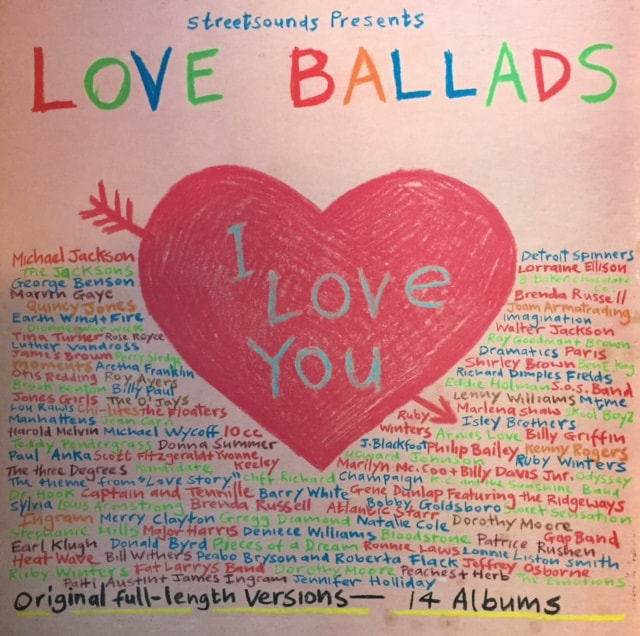 Streetsounds Presents
LOVE BALLADS
I
LOVE
YOU
Michael Jackson
The Jacksons
George Benson
Marvin Gaye
Quincy Jones
Earth Wind + Fire
Dionne Warwick
Tina Turner Rose Royce
Luther Vandross
James Brown Percy Sledge
moments Aretha Franklin
Otis Reading Roy Ayers
Brook Benton Billy Paul
Jones Girls The O'Jays
Lou Rawls Chi-lites The Floaters
Manhattens Jean Carn
Harold Melvin Michael Wycoff 10cc
Teddy Pendergrass Donna Summer
Paul Anka Scott Fitzgerald + Yvonne
The three Degrees Kandidate Keeley
The theme from "Love Story" Cliff Richard Champaign K.C and the Sunshine Band
Detroit Spinners
Lorraine Ellison
B Baker Chocolate
Co.
Brenda Russell
Joam Armatrading
Imagination
Walter Jackson
Ray Goodman + Brown
Dramatics Paris
Shirley Brown Ben E King
Richard Dimples Fields
Eddie Holman S.O.S. Band
Lenny Williams Mtme
Marlena Shaw Skool Boyz
Ruby Isley Brothers
Winters Armies Love Billy Griffin
J.Blackfoot Philip Bailey Kenny Rogers
Howard Johnson Ruby Winters
Marilyn Mc.Coo + Billy Davis Jnr. Odyssey
Dr. Hook Captain and Tennille Barry White Gene Dunlap Featuring the Ridgeways
Sylvia Louis Armstrong Brenda Russell Atlantic Starr Bobby Goldsboro Sweet Sensation
Ingram Merry Clayton Gregg Diamond Natalie Cole Dorothy Moore
Stephanie Mills Major Harris Deniece Williams Bloodstone Patrice Rushen Gap Band
Earl Klugh Donald Byrd Pieces of a Dream Ronnie Laws Lonnie Liston Smith
Heat Wave Bill Wither's Peabo Bryson and Roberta Flack Jeffrey Osborne
Ruby Winter's Fat Larrys Band Dorothy Moore Peaches + Herb The Emotions
Patti Austin + James Ingram Jennifer Holliday
Original full-length Versions— 14 Albums